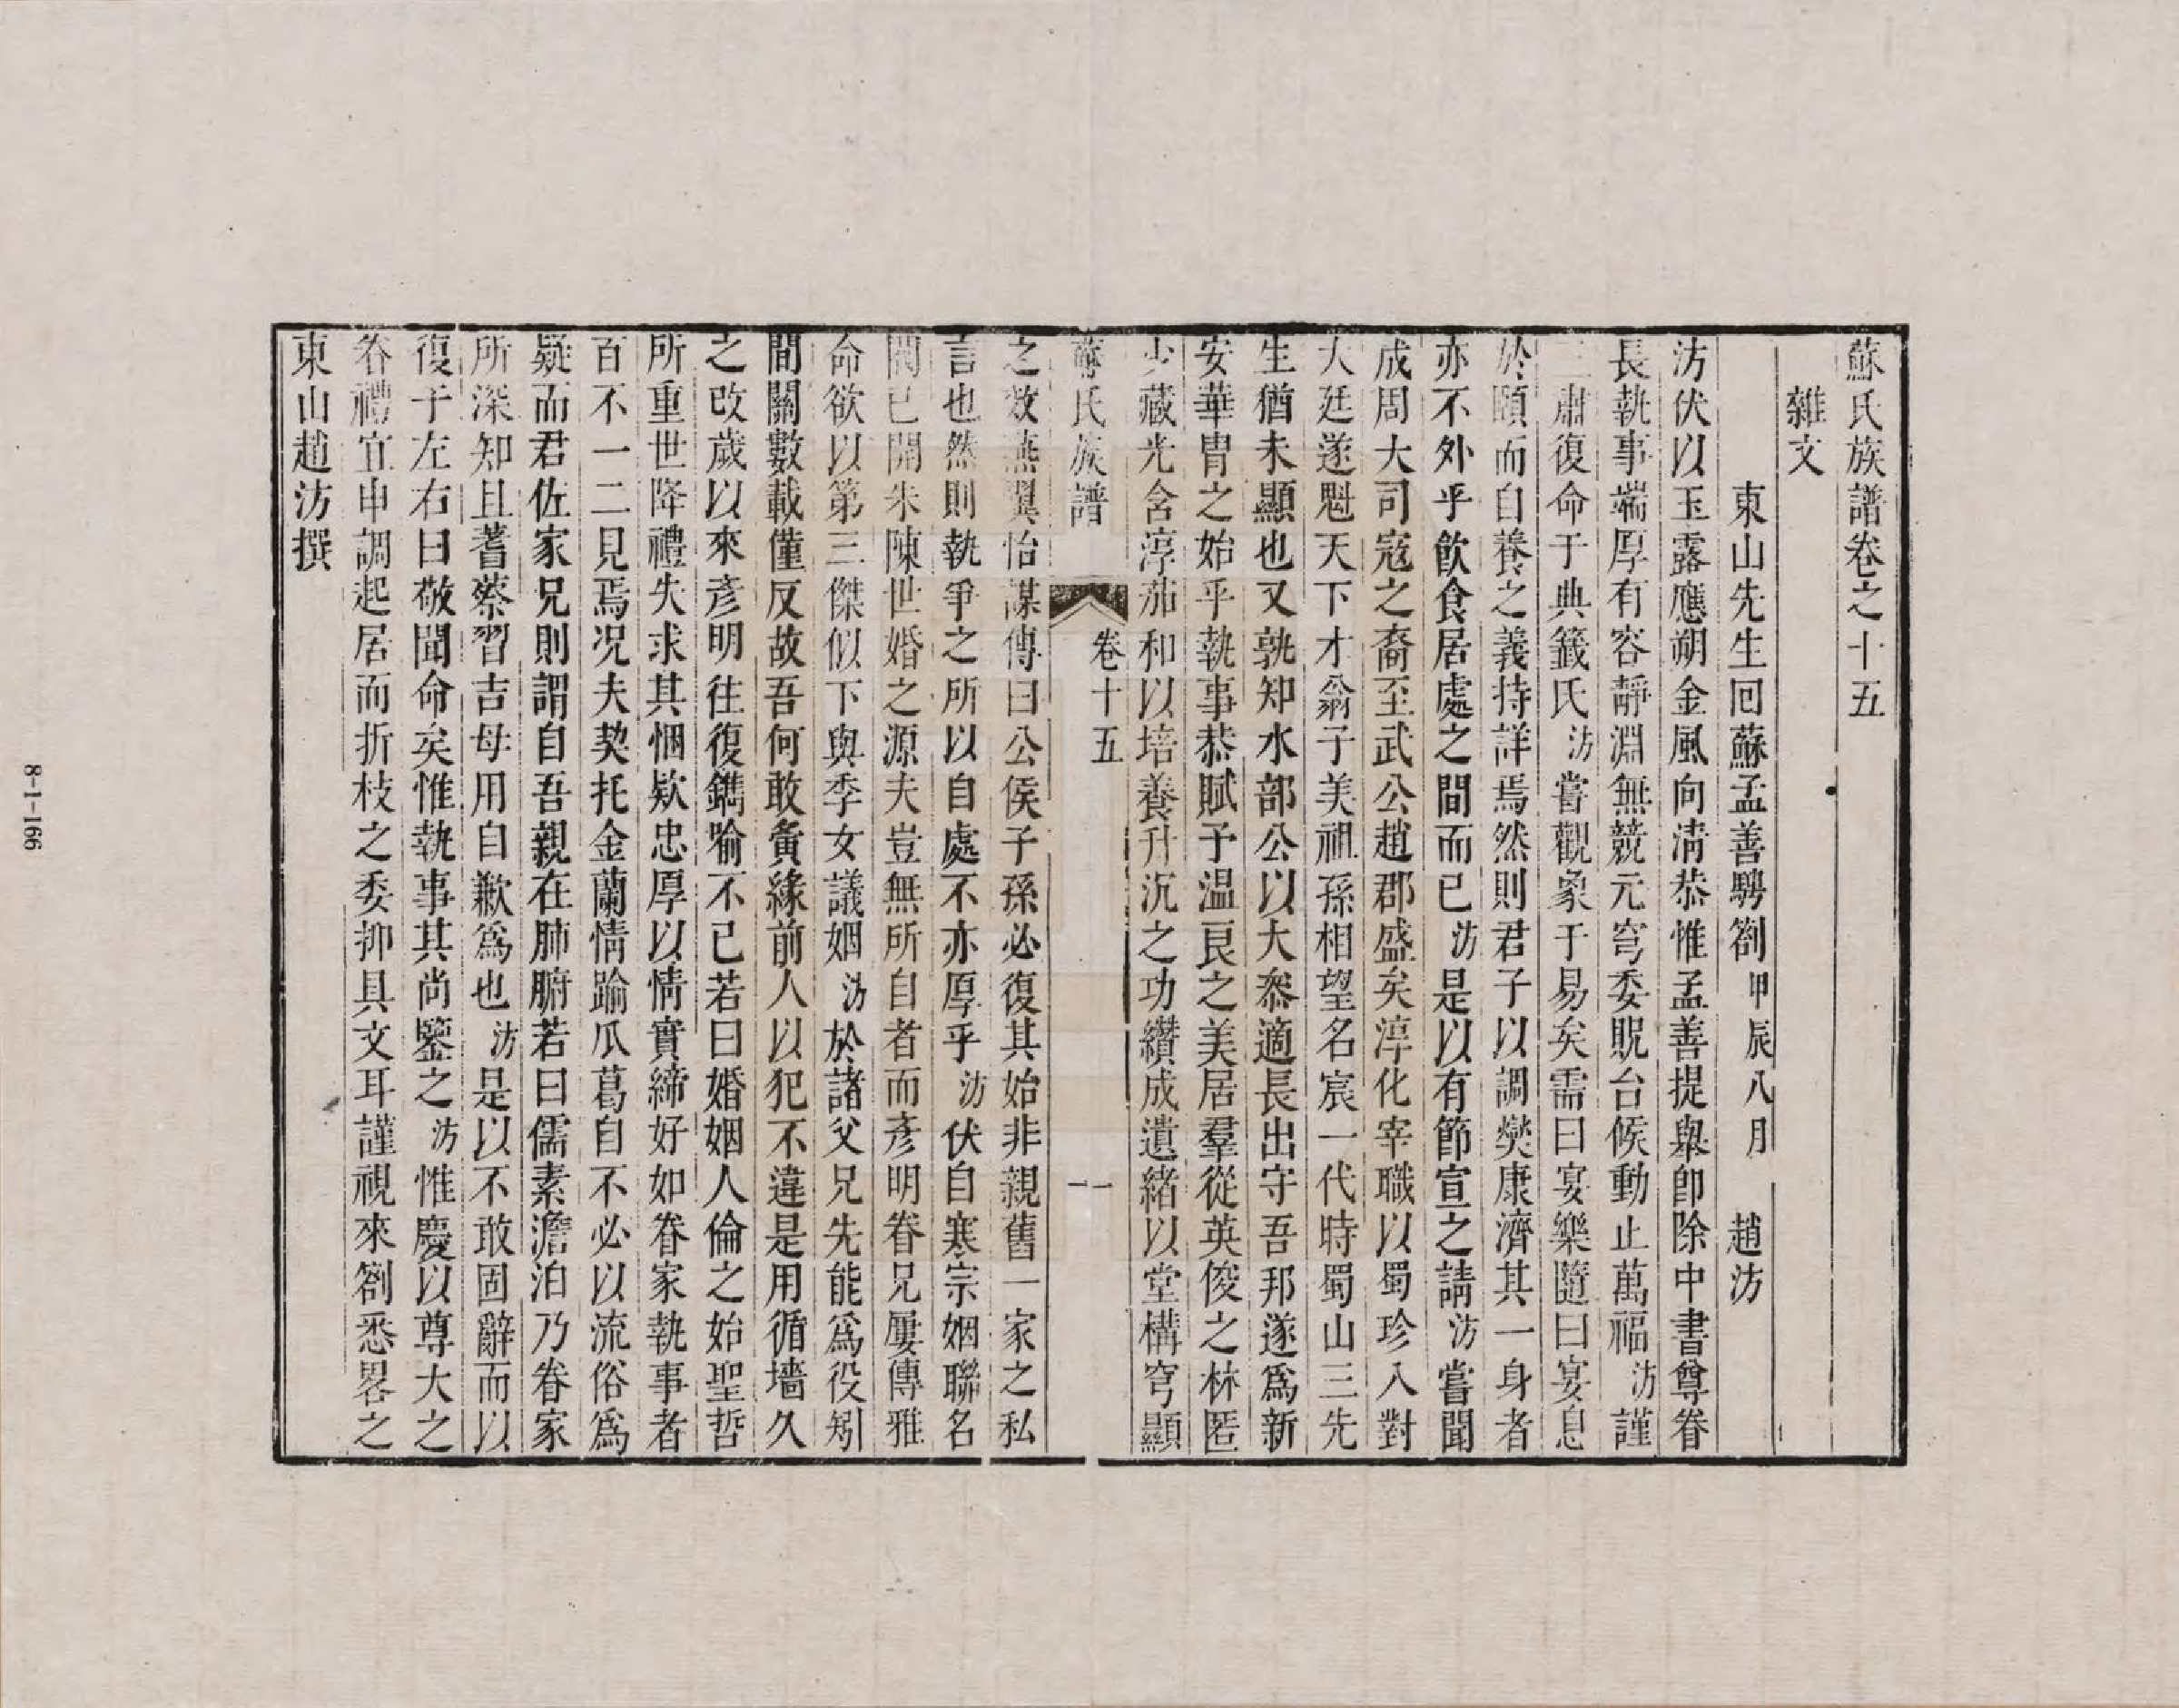 蘇氏族譜卷之十五
雜文
東山先生回蘇孟善騁劄甲辰八月 趙汸
汸伏以玉露應朔金風向淸恭惟孟善提舉卽除中書尊眷
長執事端厚有容靜淵無競元穹委貺台候動止萬福汸謹
三肅復命于典籤氏汸嘗觀象于易矣需曰宴樂隨曰宴息
於頤而自養之義持詳焉然則君子以調爕康濟其一身者
亦不外乎飮食居處之間而已汸是以有節宣之請汸嘗聞
成周大司寇之裔至武公趙郡盛矣淳化宰職以蜀珍入對
大廷遂魁天下才翁子美祖孫相望名宸一代時蜀山三先
生猶未顯也又孰知水部公以大叅適長出守吾邦遂爲新
安華胄之始乎執事恭賦予温良之美居羣從英俊之林匿
少藏光含淳茹和以培養升沉之功纘成遺緒以堂構穹顯
蘇氏族譜 卷十五 一
之敎燕翼怡謀傳曰公侯子孫必復其始非親舊一家之私
言也然則執爭之所以自處不亦厚乎汸伏自寒宗姻聯名
閥已開朱陳世婚之源夫豈無所自者而彥明眷兄屢傳雅
命欲以第三傑似下與季女議姻汸於諸父兄先能爲役矧
間關數載僅反故吾何敢夤緣前人以犯不違是用循墻久
之改歲以來彥明往復鐫喻不已若曰婚姻人倫之始聖哲
所重世降禮失求其悃欵忠厚以情實締好如眷家執事者
百不一二見焉况夫契托金蘭情踰瓜葛自不必以流俗爲
疑而君佐家兄則謂自吾親在肺腑若曰儒素澹泊乃眷家
所深知且蓍蔡習吉母用自歉爲也汸是以不敢固辭而以
復于左右曰敬聞命矣惟執事其尚鑒之汸惟慶以尊大之
眷禮宜申調起居而折枝之委抑具文耳謹視來劄悉畧之
東山趙汸撰
8-1-166